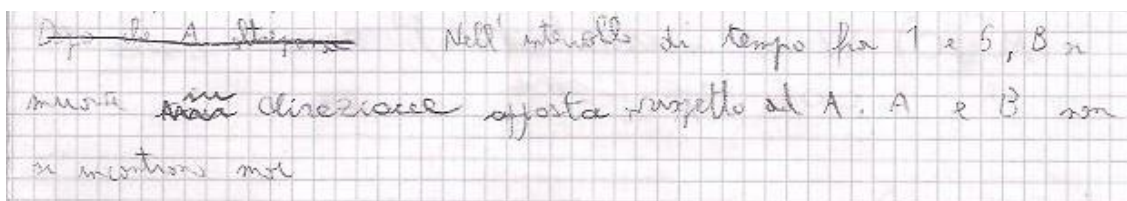 Dopo che A oltrepassa Nell'intervallo di tempo fra 1 e 5, B si
muove in direzione opposta rispetto ad A. A e B non
si incontrano mai